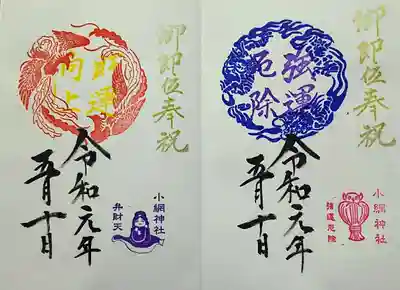 御即位奉祝
強運
厄除
令和元年
五月十日
小網神社
強運厄除
御即位奉祝
財運
向上
令和元年
五月十日
小網神社
弁財天